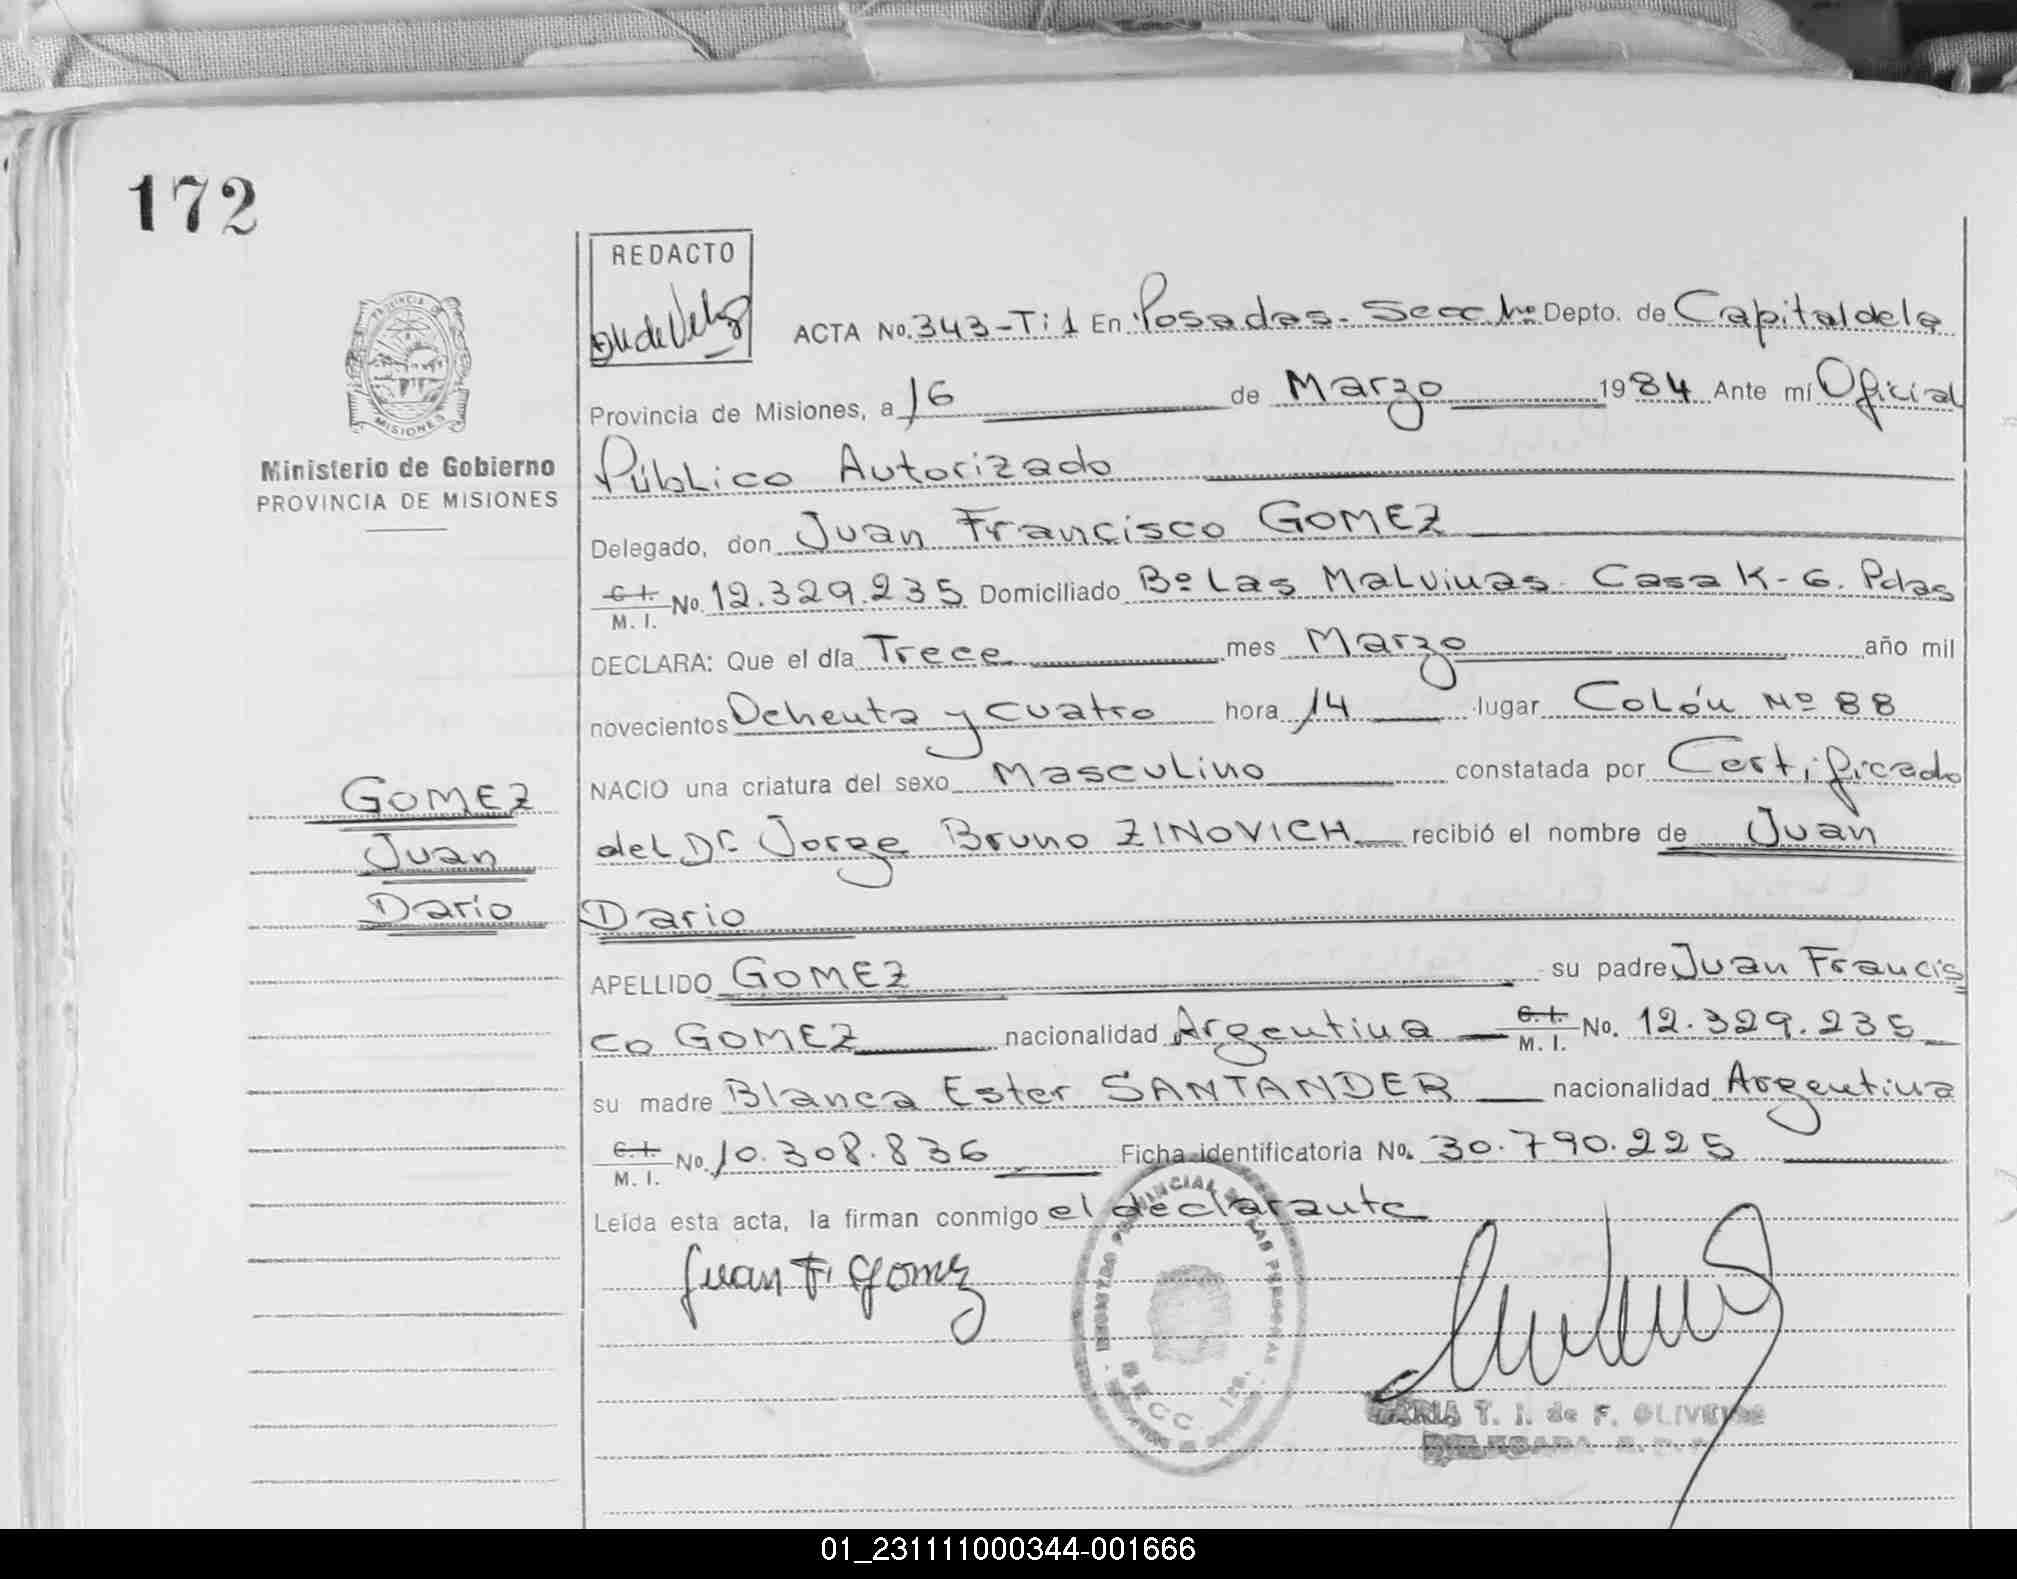 172
REDACTO
PROVINCIA DE
MISIONES
Ministerio de Gobierno
PROVINCIA DE MISIONES
ACTA No. 343-T:1 En Posadas. Secc 1ra Depto. de Capital de la
Provincia de Misiones, a 16 de Marzo 1984 Ante mí Oficial
Público Autorizado
Delegado, don Juan Francisco GOMEZ
C.I. M. I. No. 12.329.235 Domiciliado Bº Las Malvinas. Casa K-6. Pdas
DECLARA: Que el día Trece mes Marzo año mil
novecientos Ochenta y cuatro hora 14 lugar Colón Nº 88
NACIO una criatura del sexo Masculino constatada por Certificado
del Dr. Jorge Bruno ZINOVICH recibió el nombre de Juan
Dario
APELLIDO GOMEZ su padre Juan Francis
co GOMEZ nacionalidad Argentina C.I. M. I. No. 12.329.235
su madre Blanca Ester SANTANDER nacionalidad Argentina
C.I. M. I. No. 10.308.836 Ficha identificatoria No. 30.790.225
Leída esta acta, la firman conmigo el declarante
GOMEZ
Juan
Dario
Juan F. Gomez
REGISTRO PROVINCIAL DE LAS PERSONAS
SECC. 1ra.
MARIA T. I. de F. OLIVEIRA
DELEGADA R. P. P.
01_231111000344-001666